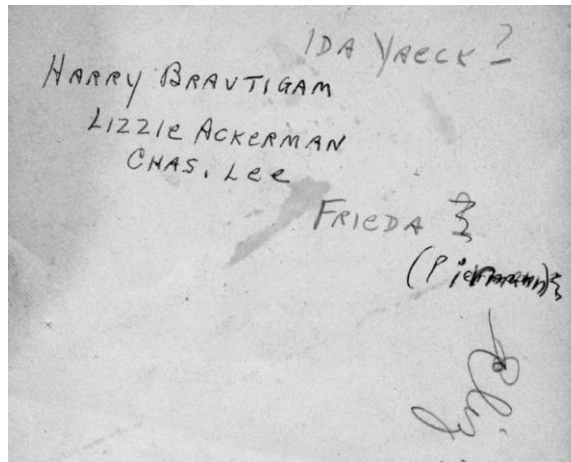 IDA YAECK ?
HARRY BRAUTIGAM
LIZZIE ACKERMAN
CHAS. Lee
FRIEDA